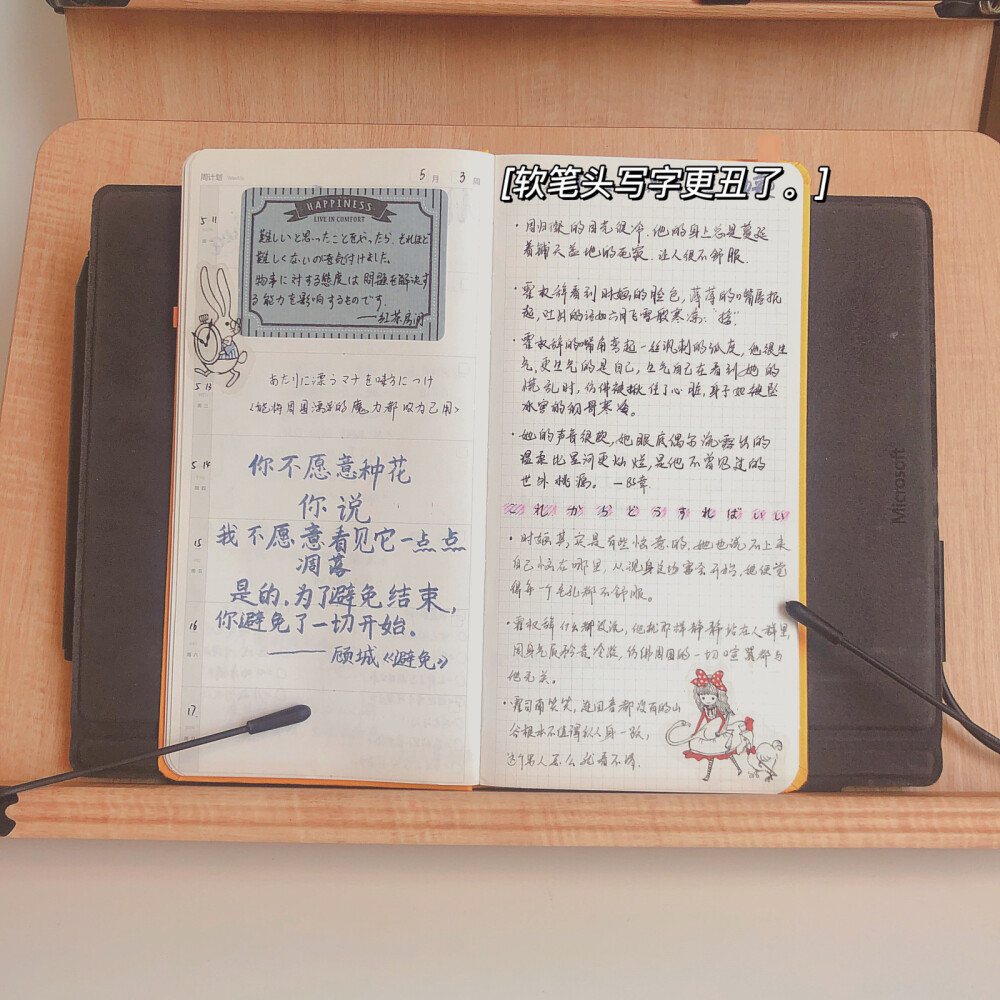 周计划
5月 3周
5 11
HAPPINESS
LIVE IN COMFORT
難しいと思ったことをやったら、それほど
難しくないの気付けました。
物事に対する態度は問題を解決す
る能力を影响するものです。
——红茶房间
5 13
あたりに漂うマナを味方につけ
<能将周围漂浮的魔力都收为己用>
5 14
你不愿意种花
你说
我不愿意看见它一点点
凋落
15
是的,为了避免结束,
你避免了一切开始。
16
——顾城《避免》
17
[软笔头写字更丑了。]
·周归璨的目光很冷,他的身上总是蔓延
着铺天盖地的死寂,让人很不舒服.
·霍权辞看到时妩的脸色,薄薄的嘴唇抿
起,吐出的话如六月飞雪般寒凉:
·霍权辞的嘴角弯起一丝讽刺的弧度,他很生
气,更生气的是自己,生气自己在看到她的
慌乱时,仿佛被揪住了心脏,身子如被坠
冰窖的彻骨寒冷。
·她的声音很软,她眼底偶尔流露出的
温柔比星河更灿烂,是他不曾见过的
世外桃源。—85章
これからどうすればいい
·时妩其实是有些恼意的,她也说不上来
自己恼在哪里,从现身这场宴会开始,她便觉
得每一个毛孔都不舒服。
·霍权辞什么都没说,他就那样静静站在人群里
周身气质矜贵冷淡,仿佛周围的一切喧嚣都与
他无关。
·霍司南笑笑,连回音都没有的山
谷根本不值得纵身一跃,
这个男人怎么就看不透.
Microsoft